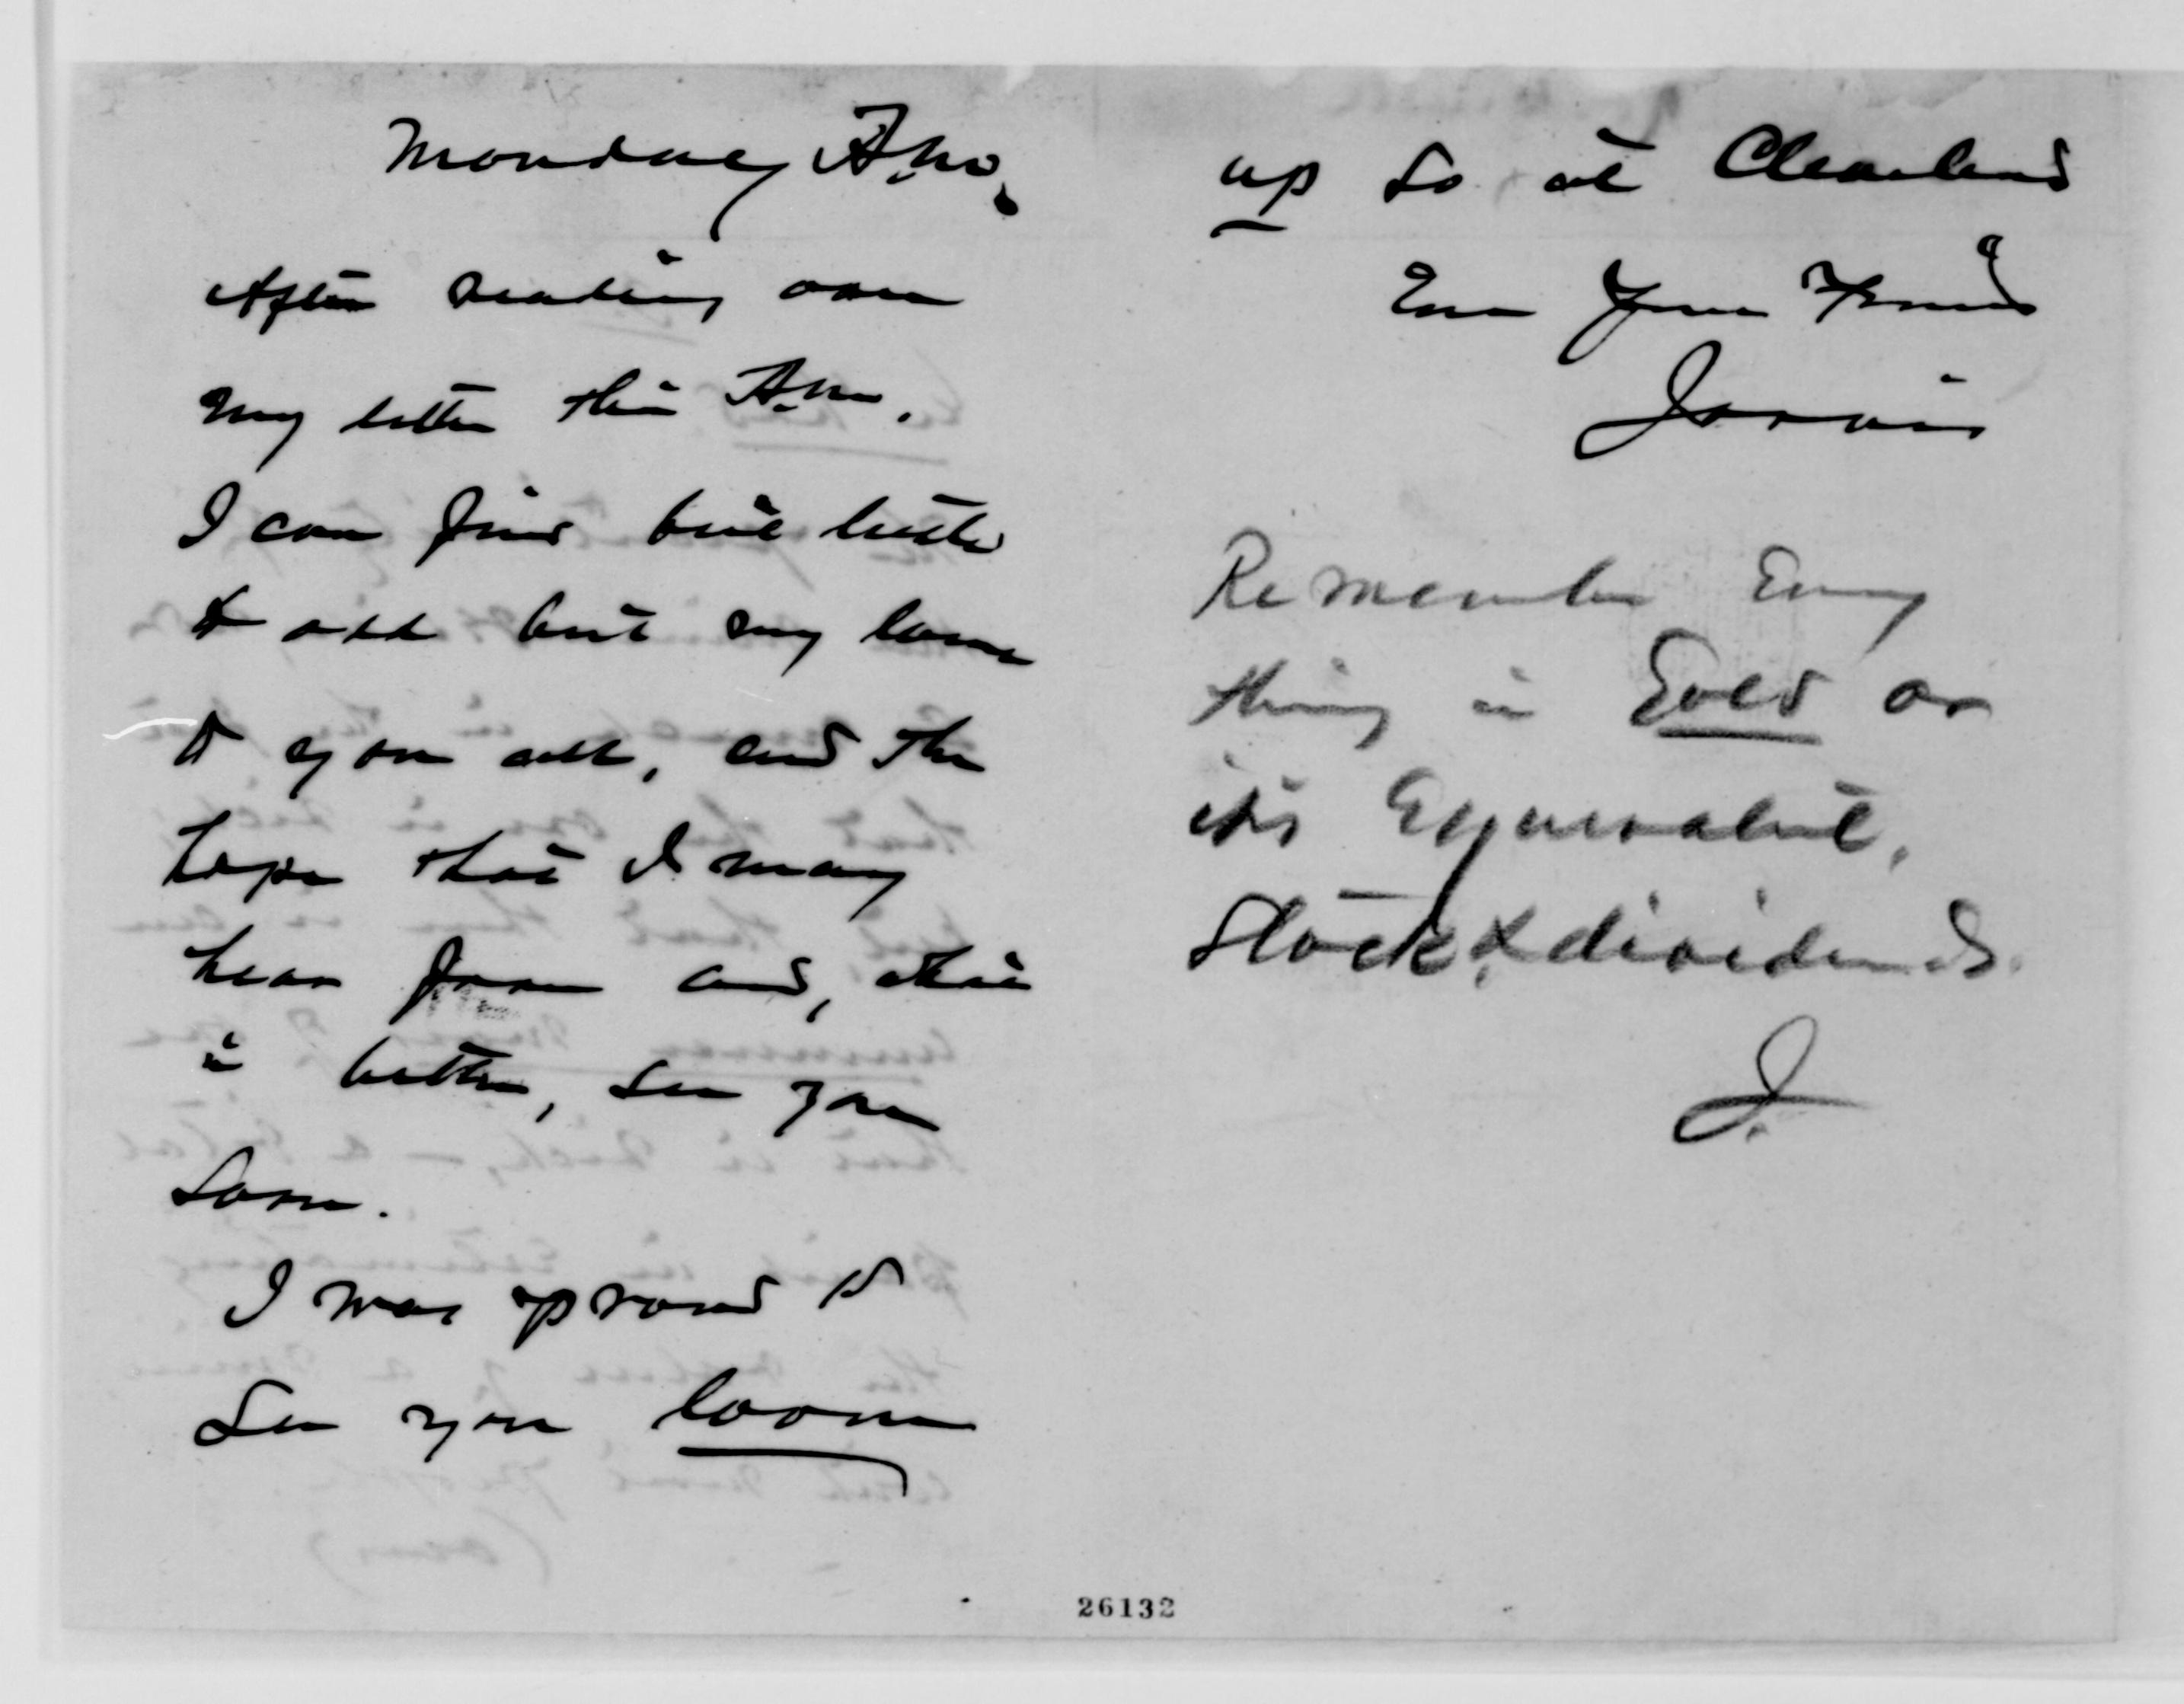 Monday A.M.
After reading over
my letter this A.M.,
I can find but little
to add but my love
to you all, and the
hope that I may
hear from and, what
is better, see you
soon.
I was proud to
see you loom
up so at Cleveland
Ever Your Friend
Jarvis
Remember Every
thing in Gold or
its Equivalent,
Stock & dividends.
J.
26132